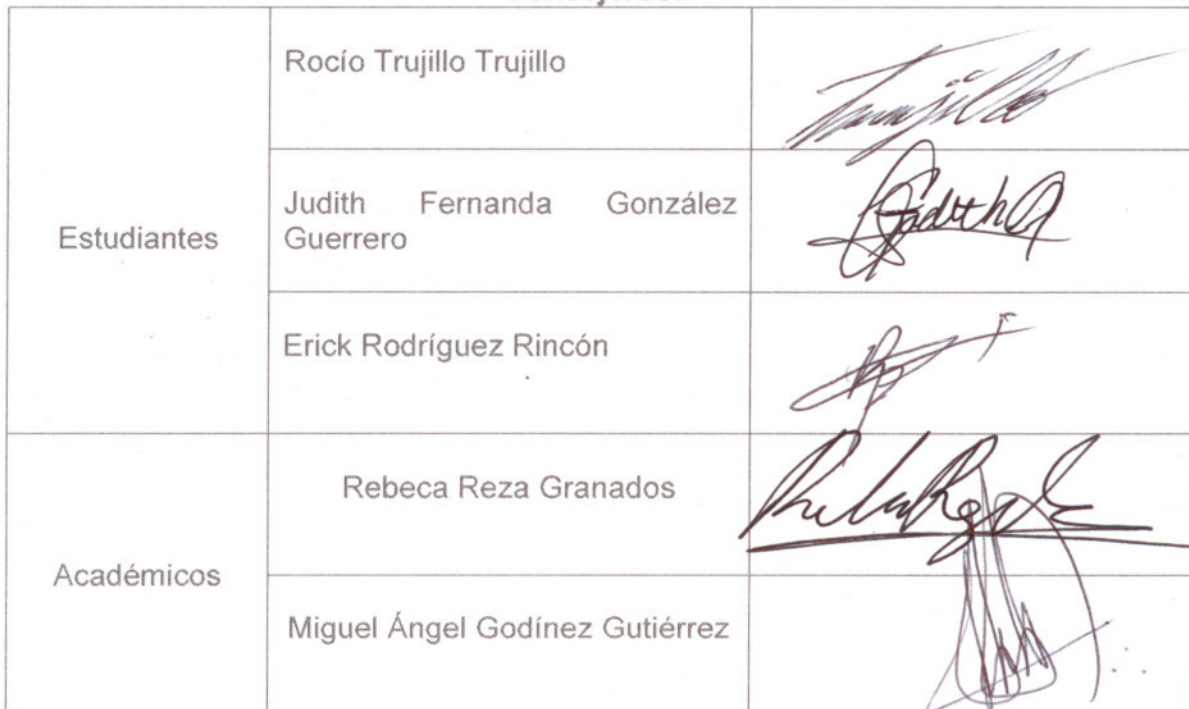 Rocío Trujillo Trujillo
Trujillo
Estudiantes
Judith Fernanda González
Guerrero
Judith G
Erick Rodríguez Rincón
Académicos
Rebeca Reza Granados
Miguel Ángel Godínez Gutiérrez